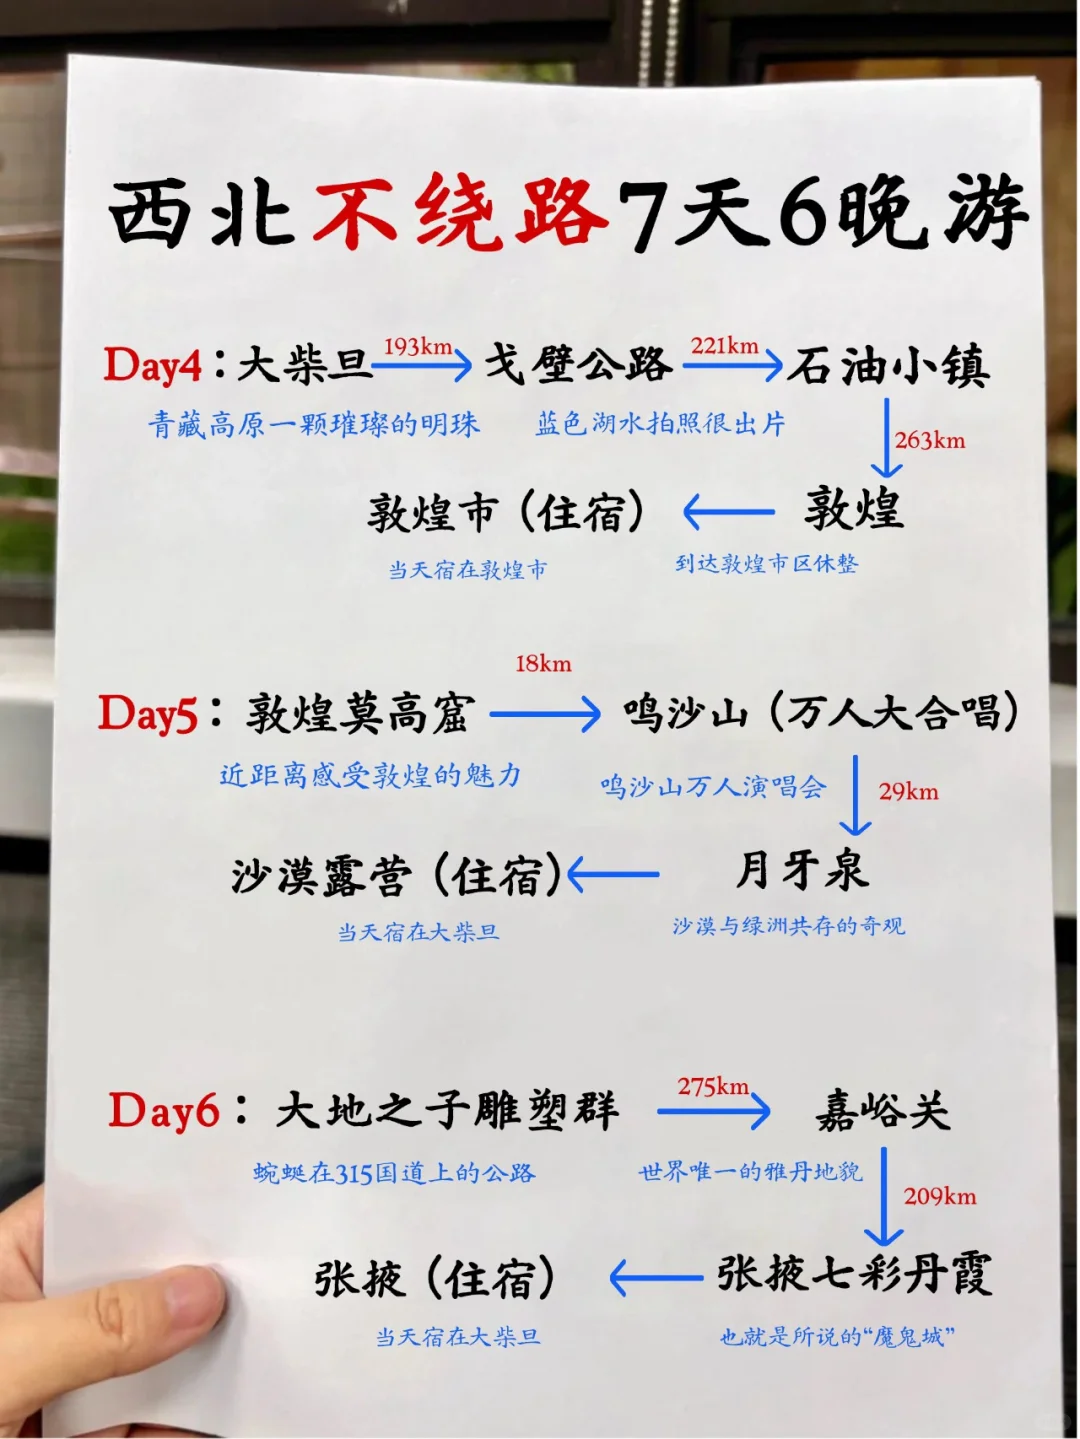 西北不绕路7天6晚游
Day4：大柴旦 193km 戈壁公路 221km 石油小镇
青藏高原一颗璀璨的明珠 蓝色湖水拍照很出片
263km
敦煌市（住宿） 敦煌
当天宿在敦煌市 到达敦煌市区休整
18km
Day5：敦煌莫高窟 鸣沙山（万人大合唱）
近距离感受敦煌的魅力 鸣沙山万人演唱会 29km
沙漠露营（住宿） 月牙泉
当天宿在大柴旦 沙漠与绿洲共存的奇观
Day6：大地之子雕塑群 275km 嘉峪关
蜿蜒在315国道上的公路 世界唯一的雅丹地貌
209km
张掖（住宿） 张掖七彩丹霞
当天宿在大柴旦 也就是所说的“魔鬼城”